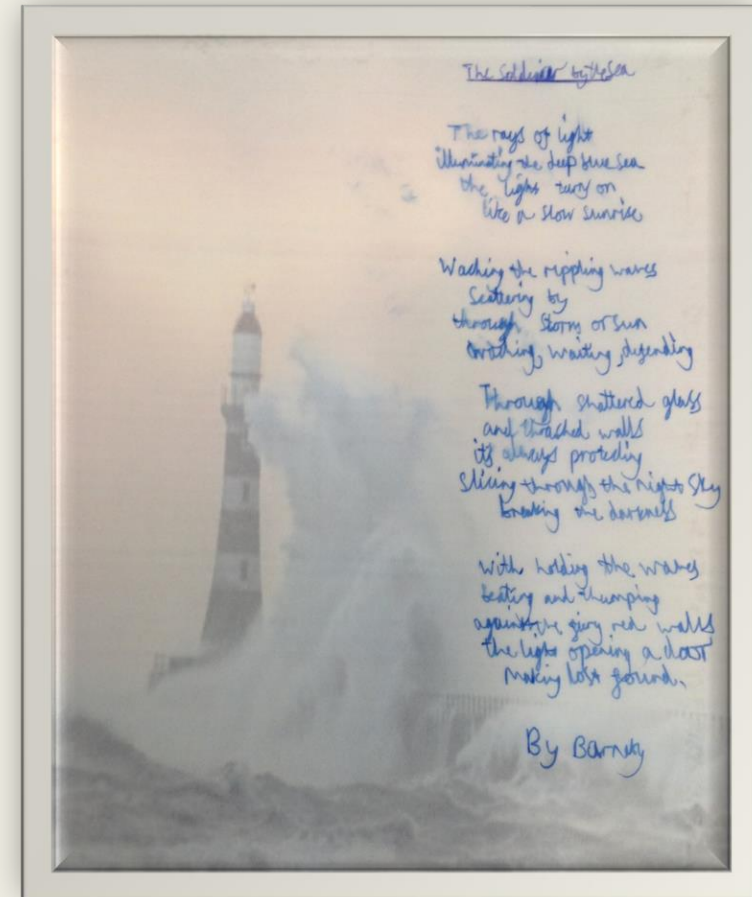 The Soldier by the Sea
The rays of light
illuminating the deep blue sea
the light turns on
like a slow sunrise
Waching the rippling waves
Scattering by
through Storm or sun
watching, waiting, defending
Through shattered glass
and thrashed walls
it's always protecting
Slicing through the night Sky
breaking the darkness
with holding the waves
beating and thumping
against the firey red walls
the light opening a door
making lost found.
By Barnaby